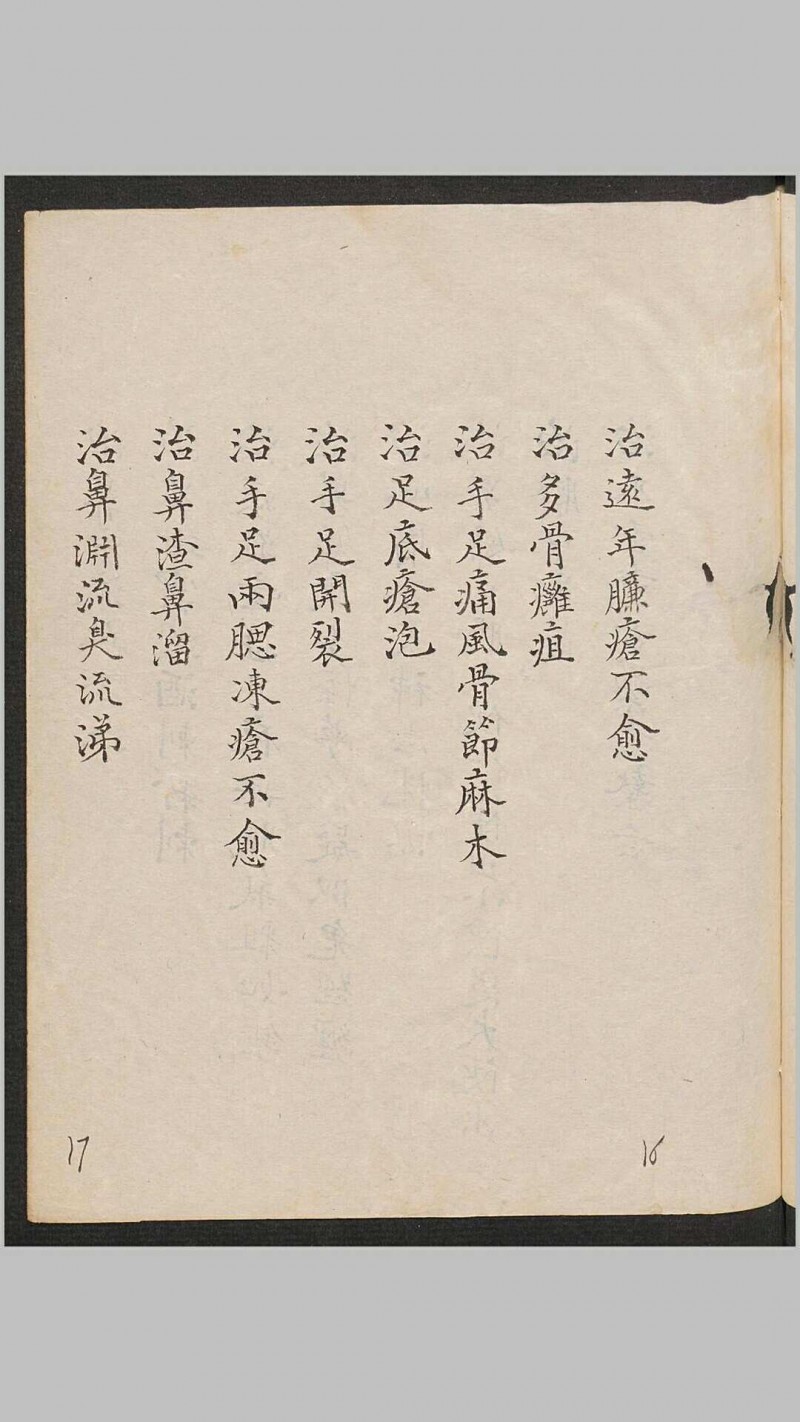 治遠年臁瘡不愈
治多骨癰疽
治手足痛風骨節麻木
治足底瘡泡
治手足開裂
治手足兩腮凍瘡不愈
治鼻渣鼻溜
治鼻淵流臭流涕
16
17